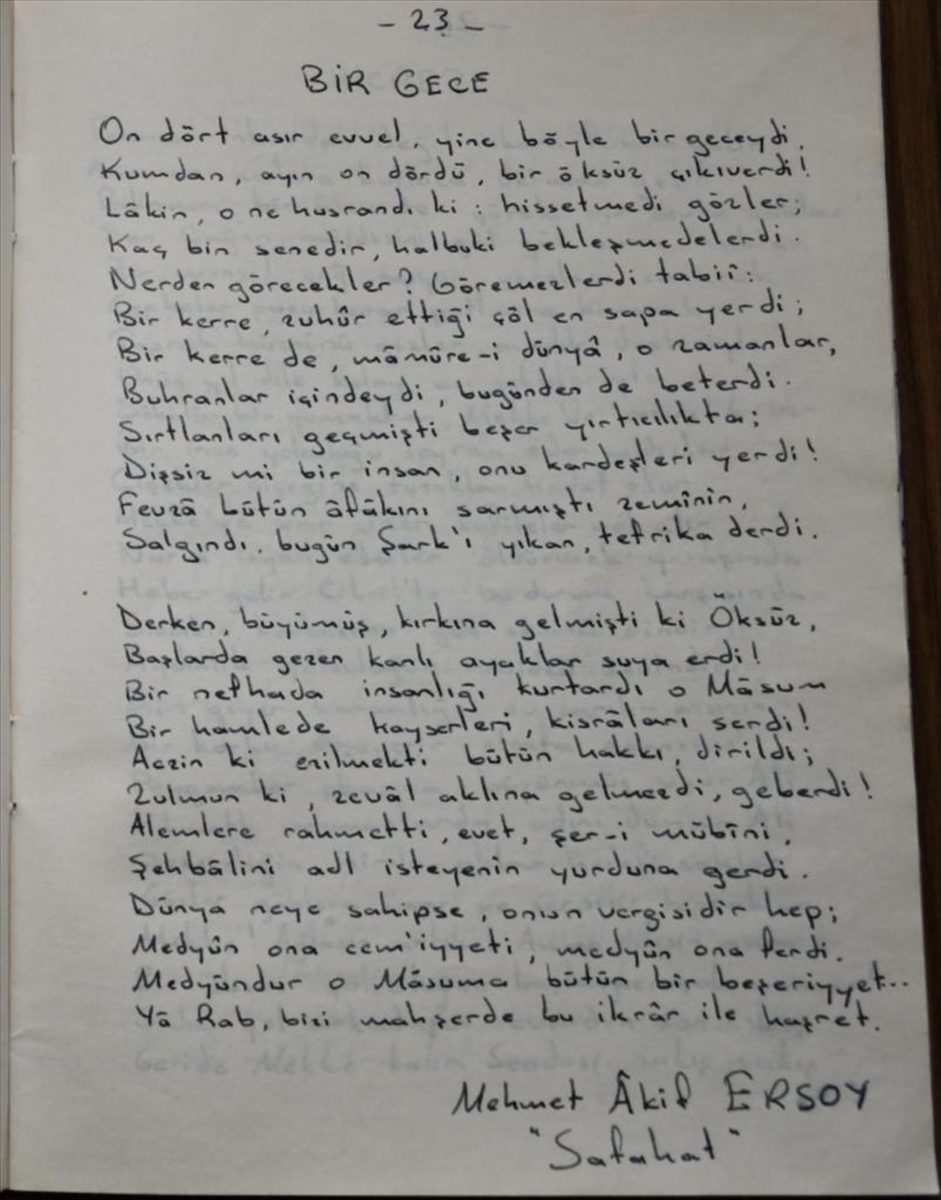 - 23 -
BİR GECE
On dört asır evvel, yine böyle bir geceydi,
Kumdan, ayın on dördü, bir öksüz çıkıverdi!
Lâkin, o ne husrandı ki : hissetmedi gözler;
Kaç bin senedir, halbuki bekleşmedelerdi.
Nerden görecekler? Göremezlerdi tabiî:
Bir kerre, zuhûr ettiği çöl en sapa yerdi;
Bir kerre de, mâmûre-i dünyâ, o zamanlar,
Buhranlar içindeydi, bugünden de beterdi.
Sırtlanları geçmişti beşer yırtıcılıkta;
Dişsiz mi bir insan, onu kardeşleri yerdi!
Fevzâ bütün âfâkını sarmıştı zemînin,
Salgındı, bugün Şark'ı yıkan, tefrika derdi.
Derken, büyümüş, kırkına gelmişti ki Öksüz,
Başlarda gezen kanlı ayaklar suya erdi!
Bir nefhada insanlığı kurtardı o Mâsum
Bir hamlede kayserleri, kisrâları serdi!
Aczin ki ezilmekti bütün hakkı, dirildi;
Zulmun ki, zevâl aklına gelmezdi, geberdi!
Alemlere rahmetti, evet, şer-i mübîni,
Şehbâlini adl isteyenin yurduna gerdi.
Dünya neye sahipse, onun vergisidir hep;
Medyûn ona cem'iyyeti, medyûn ona ferdi.
Medyûndur o Mâsuma bütün bir beşeriyyet..
Yâ Rab, bizi mahşerde bu ikrâr ile haşret.
Mehmet Âkif ERSOY
"Safahat"